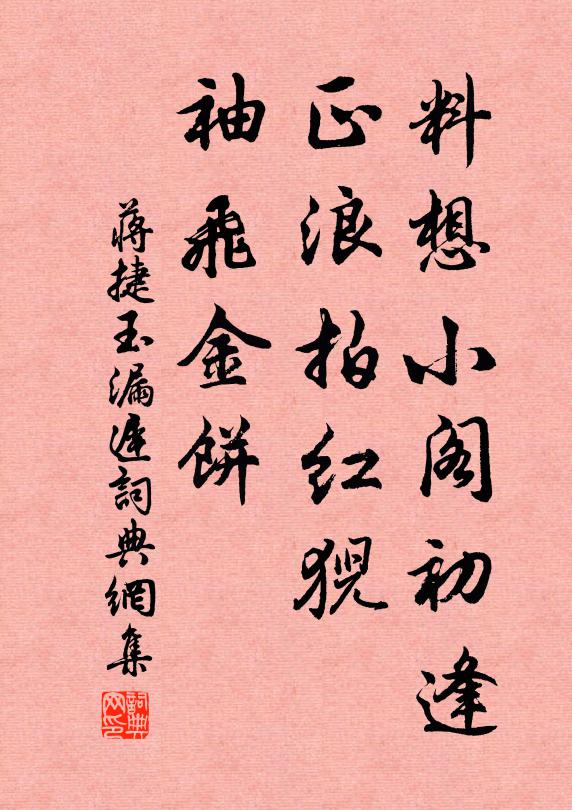 料想小阁初逢
正浪拍红猊
袖飛金餅
蔣捷玉漏遲詞典網集
詞典网印